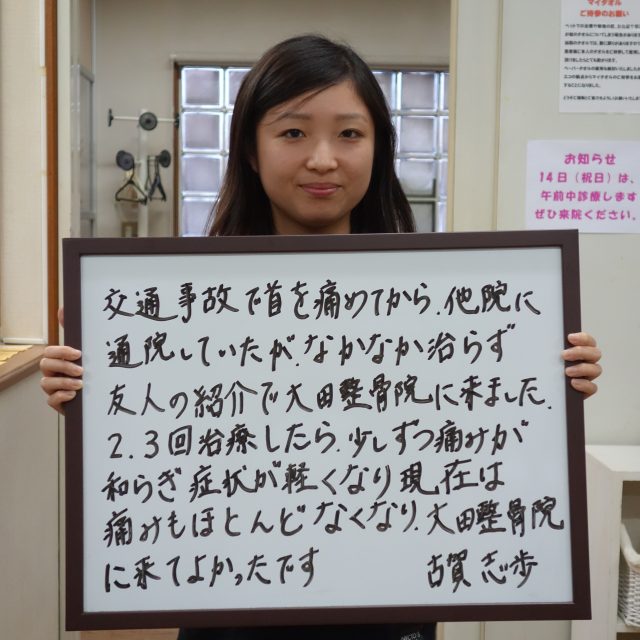 マイタオル
ご持参のお願い
お知らせ
14日（祝日）は、
午前中診療します
ぜひ来院ください。
交通事故で首を痛めてから、他院に
通院していたが、なかなか治らず
友人の紹介で大田整骨院に来ました。
2.3回治療したら、少しずつ痛みが
和らぎ症状が軽くなり現在は
痛みもほとんどなくなり、大田整骨院
に来てよかったです
古賀志歩